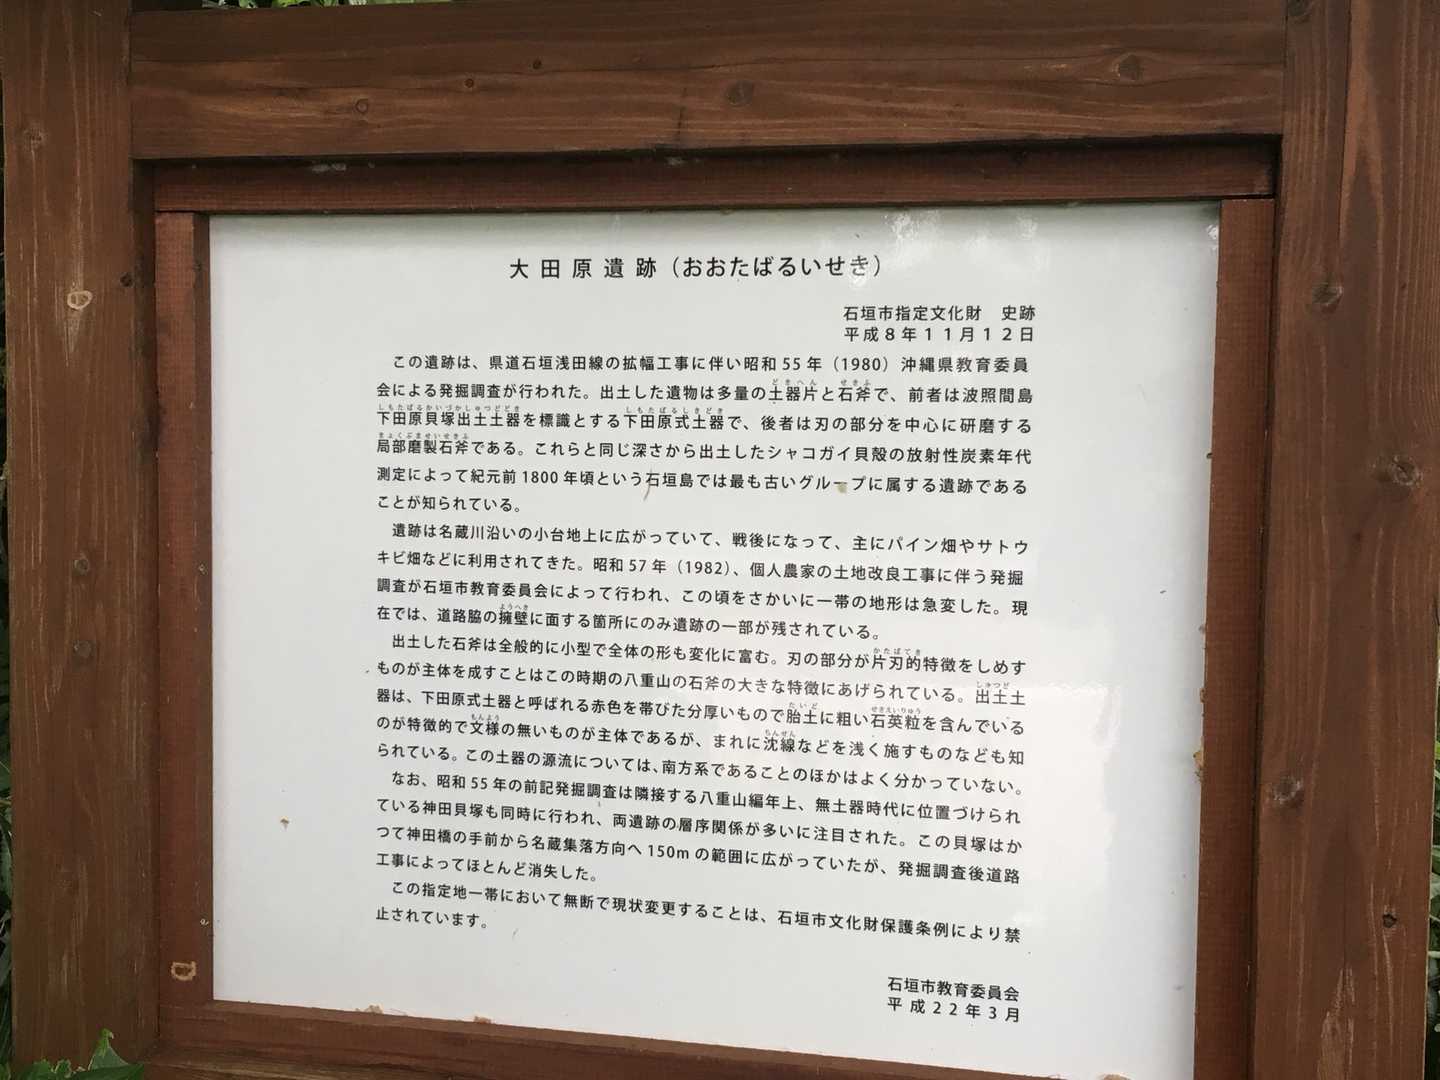 大田原遺跡（おおたばるいせき）
石垣市指定文化財　史跡
平成８年１１月１２日
この遺跡は、県道石垣浅田線の拡幅工事に伴い昭和55年（1980）沖縄県教育委員
会による発掘調査が行われた。出土した遺物は多量の土器片と石斧で、前者は波照間島
下田原貝塚出土土器を標識とする下田原式土器で、後者は刃の部分を中心に研磨する
局部磨製石斧である。これらと同じ深さから出土したシャコガイ貝殻の放射性炭素年代
測定によって紀元前1800年頃という石垣島では最も古いグループに属する遺跡である
ことが知られている。
遺跡は名蔵川沿いの小台地上に広がっていて、戦後になって、主にパイン畑やサトウ
キビ畑などに利用されてきた。昭和57年（1982）、個人農家の土地改良工事に伴う発掘
調査が石垣市教育委員会によって行われ、この頃をさかいに一帯の地形は急変した。現
在では、道路脇の擁壁に面する箇所にのみ遺跡の一部が残されている。
出土した石斧は全般的に小型で全体の形も変化に富む。刃の部分が片刃的特徴をしめす
ものが主体を成すことはこの時期の八重山の石斧の大きな特徴にあげられている。出土土
器は、下田原式土器と呼ばれる赤色を帯びた分厚いもので胎土に粗い石英粒を含んでいる
のが特徴的で文様の無いものが主体であるが、まれに沈線などを浅く施すものなども知
られている。この土器の源流については、南方系であることのほかはよく分かっていない。
なお、昭和55年の前記発掘調査は隣接する八重山編年上、無土器時代に位置づけられ
ている神田貝塚も同時に行われ、両遺跡の層序関係が多いに注目された。この貝塚はか
つて神田橋の手前から名蔵集落方向へ150mの範囲に広がっていたが、発掘調査後道路
工事によってほとんど消失した。
この指定地一帯において無断で現状変更することは、石垣市文化財保護条例により禁
止されています。
石垣市教育委員会
平成２２年３月